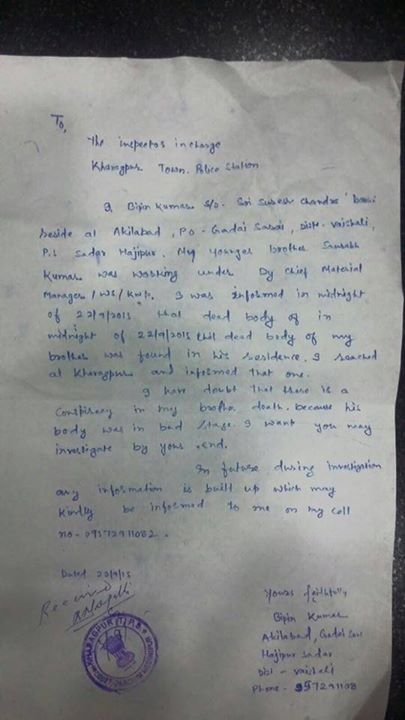 To,
The inspector incharge
Kharagpur Town Police Station
I Bipin Kumar s/o - Sri Suresh Chandra
Reside at Akilabad, P.O - Gadai Sarai, Distt - Vaishali,
P.S Sadar Hajipur. My younger brother Saurabh
Kumar was working under Dy Chief Material
Manager / WS / KGP. I was informed in midnight
of 22/9/2015 that dead body of in
midnight of 22/9/2015 that dead body of my
brother was found in his residence. I reached
at Kharagpur and informed that one.
I have doubt that there is a
Conspiracy in my brother death. because his
body was in bad stage. I want you may
investigate by your end.
In future during investigation
any information is built up which may
Kindly be informed to me on my cell
no - 09572911082.
Dated
Received
Yours faithfully
Bipin Kumar
Akilabad, Gadai Sarai
Hajipur Sadar
Dist - vaishali
Phone -
KHARAGPUR (T) P.S